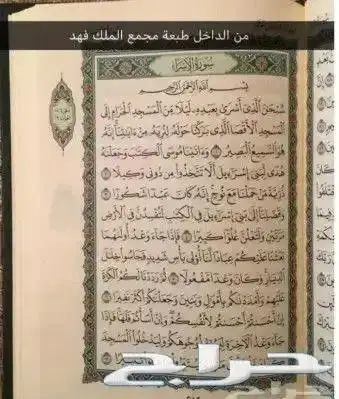 من الداخل طبعة مجمع الملك فهد
سورة الإسراء
بسم الله الرحمن الرحيم
سبحن الذي أسرى بعبده ليلا من المسجد الحرام إلى
المسجد الأقصا الذي بركنا حوله لنريه من ءايتنا إنه
هو السميع البصير وءاتينا موسى الكتب وجعلنه
هدى لبني إسرءيل ألا تتخذوا من دوني وكيلا
ذرية من حملنا مع نوح إنه كان عبدا شكورا
وقضينا إلى بني إسرءيل في الكتب لتفسدن في الأرض
مرتين ولتعلن علوا كبيرا فإذا جاء وعد أولىهما
بعثنا عليكم عبادا لنا أولي بأس شديد فجاسوا خلل
الديار وكان وعدا مفعولا ثم رددنا لكم الكرة
عليهم وأمددنكم بأمول وبنين وجعلنكم أكثر نفيرا
إن أحسنتم أحسنتم لأنفسكم وإن أسأتم فلها فإذا
جاء وعد الآخرة وجوهكم وليدخلوا المسجد
حراج